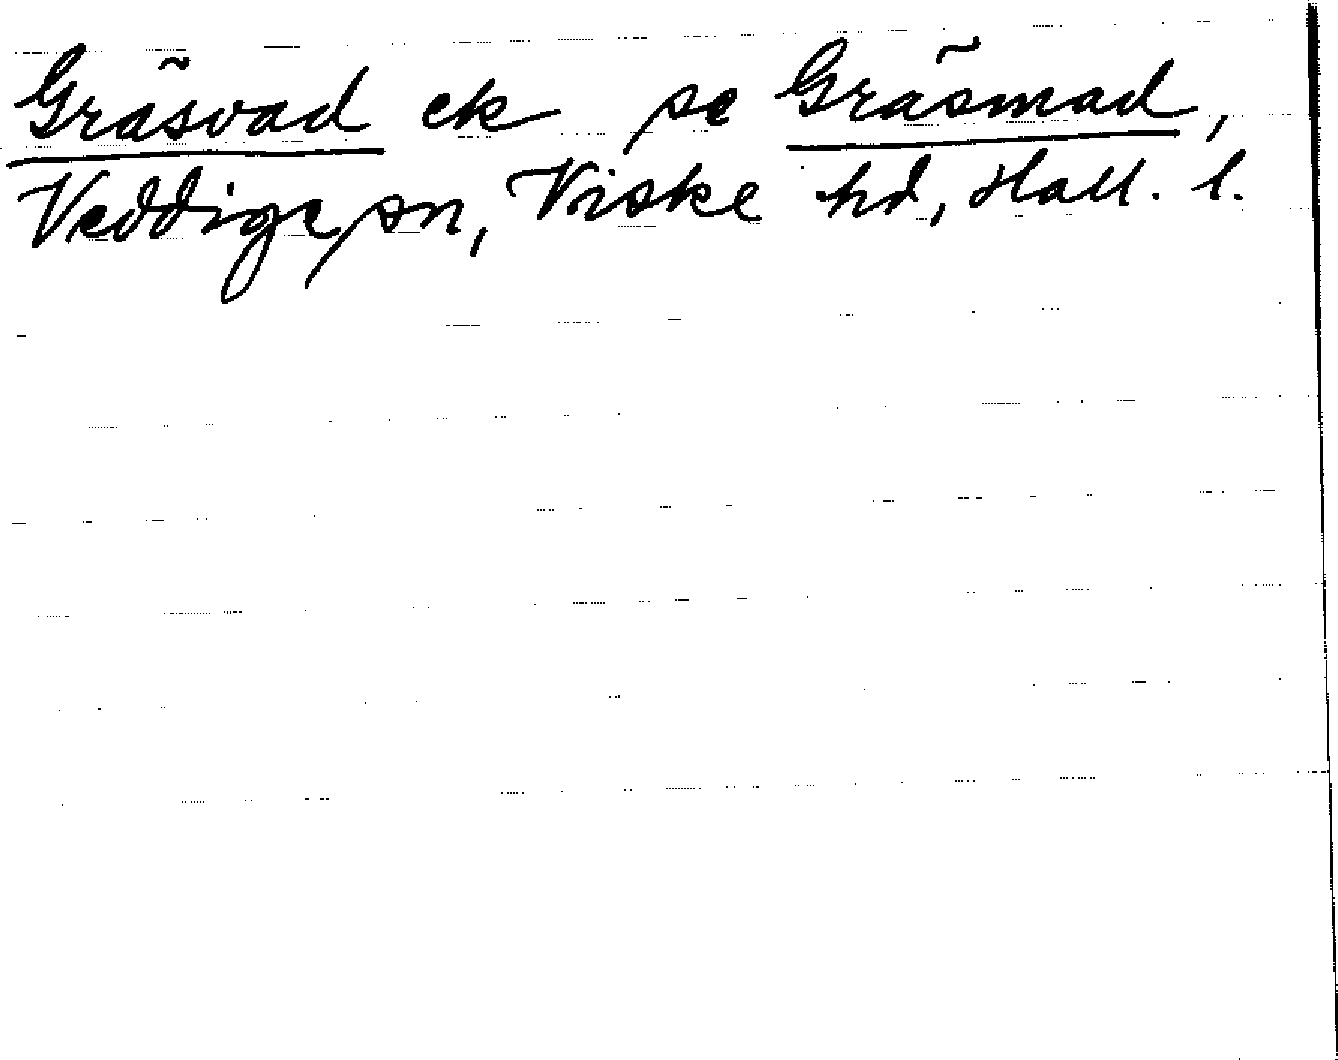 Gräsvad ek se Gräsmad,
Veddige sn, Viske hd, Hall. l.